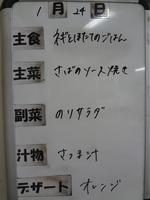 1月24日
主食 ネギとほたてのごはん
主菜 さばのソース焼き
副菜 のりサラダ
汁物 さつま汁
デザート オレンジ